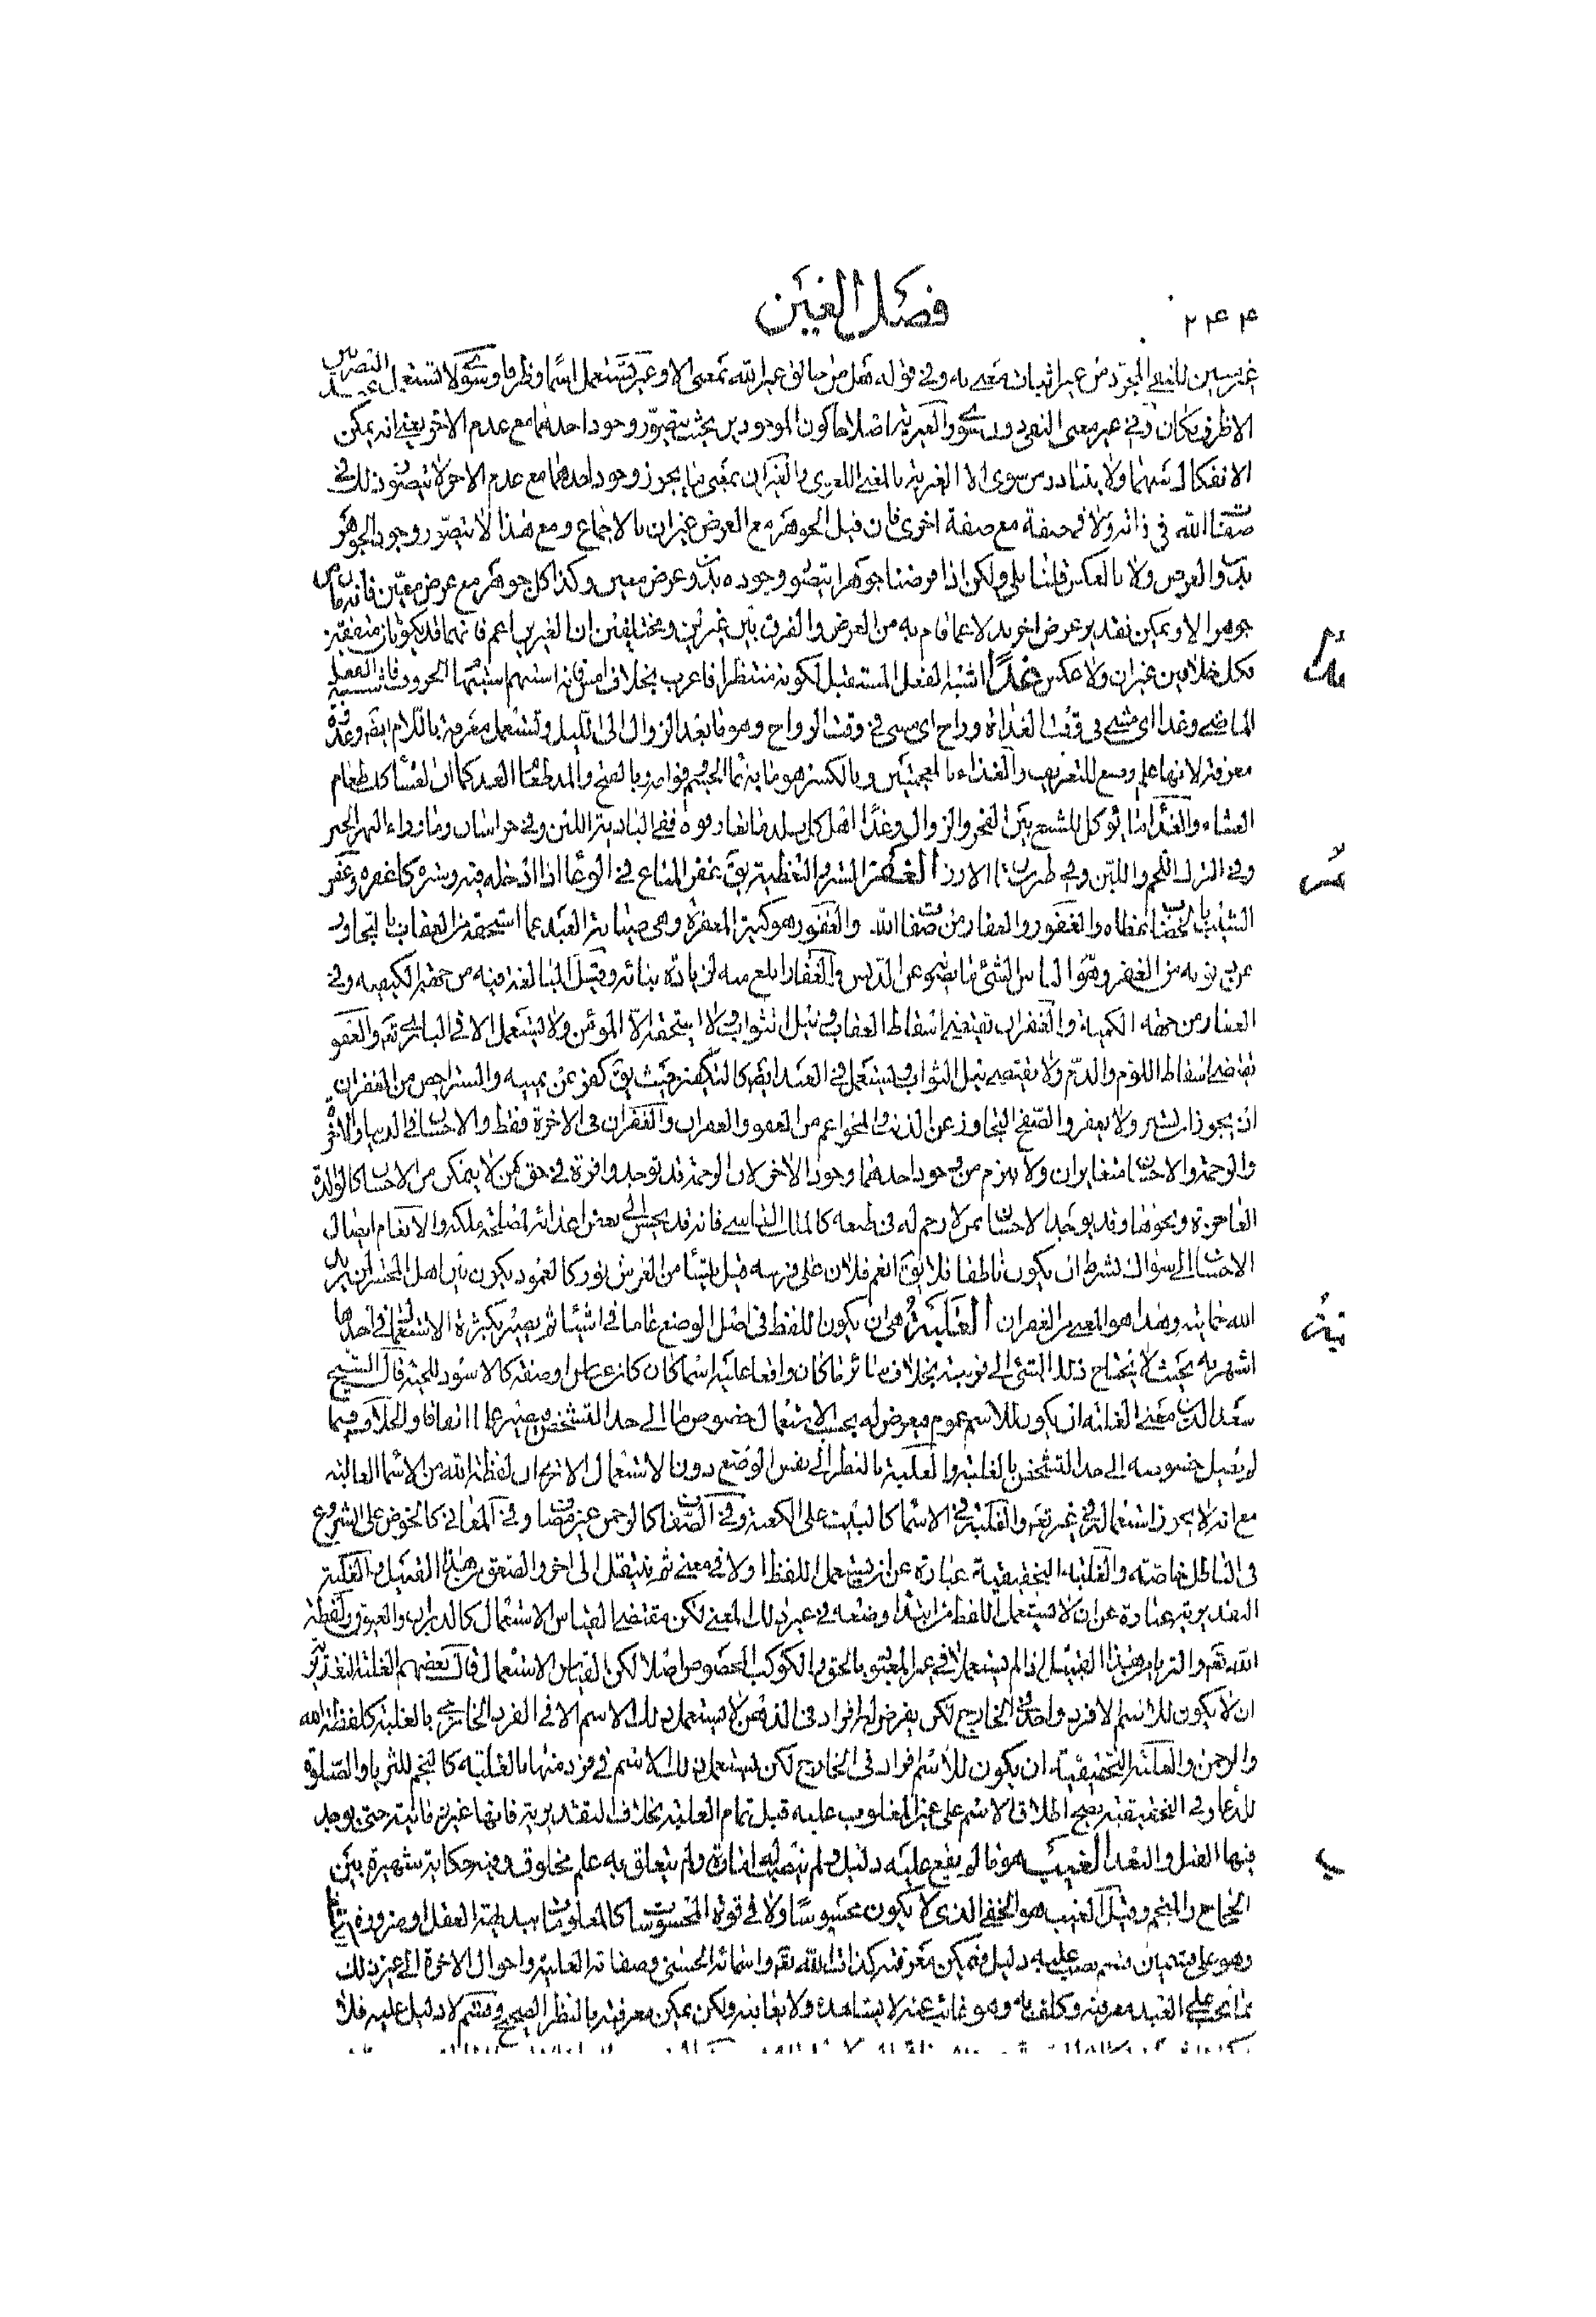 ٢٤٤ فصل الغين
غير سبين للنفي المجرد من غير اثبات معنى به وفي قوله هل من خالق غير الله بمعنى الا وغير تستعمل اسما وظرفا وسوى لا تستعمل عند البصريين
الا ظرف مكان وفي غير معنى النفي دون سوى والغيرية اصلاحا كون الموجودين بحيث يتصور وجود احدهما مع عدم الاخر يعني انه يمكن
الانفكاك بينهما ولا يتبادر من سوى الا الغيرية بالمعنى اللغوي والغيران بمعنى ما يجوز وجود احدهما مع عدم الاخر لا يتصور ذلك في
صفات الله في ذاته ولا في صفة مع صفة اخرى فان قيل الجوهر مع العرض غيران بالاجماع ومع هذا لا يتصور وجود الجوهر
بدون العرض ولا بالعكس قلنا بلى ولكن اذا فرضنا جوهرا يتصور وجوده بدون عرض معين وكذا كل جوهر مع عرض معين فانه ما من
جوهر الا ويمكن تقدير عرض اخر بدلا عما قام به من العرض والفرق بين غيرين ومختلفين ان الغيرين اعم فانهما قد يكونان متفقين
فكل خلافين غيران ولا عكس غدا اشبه الفعل المستقبل لكونه منتظرا فاعرب بخلاف امس فانه استبهم استبهام الحروف فاشبه الفعل
الماضي وغدا اي مشى في وقت الغداة وراح اي مشى في وقت الرواح وهو ما بعد الزوال الى الليل وتستعمل معرفة باللام ايضا وغدوة
معرفة لانها علم وضع للتعريف والغذاء بالمعجمتين وبالكسر هو ما به نماء الجسم وقوامه وبالفتح والمد طعام الغد كما ان العشاء كذلك طعام
العشاء والغداء ما يؤكل للشبع بين الفجر والزوال وغداء اهل كل بلد ما تعارفوه ففي البادية اللبن وفي خراسان وما وراء النهر الخبز
وفي الترك اللحم واللبن وفي طبرستان الارز الغفر الستر والتغطية يق غفر المتاع في الوعاء اذا ادخله فيه وستره كاغفره وغفر
الشيب بالخضاب غطاه والغفور والغفار من صفات الله والغفور هو كثير المغفرة وهي صيانة العبد عما استحقه من العقاب بالتجاوز
عن ذنوبه من الغفر وهو الباس الشئ ما يصونه عن الدنس والغفار ابلغ منه لزيادة بنائه وقيل المبالغة فيه من جهة الكيفية وفي
الغفار من جهة الكمية والغفران يقتضي اسقاط العقاب ونيل الثواب ولا يستحقه الا المؤمن ولا يستعمل الا في الباري تعالى والعفو
يقتضي اسقاط اللوم والذم ولا يقتضي نيل الثواب ويستعمل في العبد ايضا كالتكفير حيث يق كفر عن يمينه والستر اخص من الغفران
اذ يجوز ان يستر ولا يغفر والصفح التجاوز عن الذنب والمحو اعم من العفو والغفران والغفران في الاخرة فقط والاحسان في الدنيا والاخرة
والرحمة والاحسان متغايران ولا يلزم من وجود احدهما وجود الاخر لان الرحمة قد توجد وافرة في حق من لا يتمكن من الاحسان كالوالدة
العاجزة ونحوها وقد يوجد الاحسان ممن لا رحم له في طبعه كالملك القاسي فانه قد يحسن الى بعض اعدائه لمصلحة ملكه والانعام ايصال
الاحسان الى سواك بشرط ان يكون ناطقا فلا يق انعم فلان على فرسه قيل يتسا من العرش نور كالعمود يكون بين اهل المحشر لمن يريد
الله خماتيه وهذا هو المعنى من الغفران الغلبة هي ان يكون اللفظ في اصل الوضع عاما في اشياء ثم يصير بكثرة الاستعمال في احدها
اشهر به بحيث لا يحتاج ذلك الشئ الى قرينة بخلاف سائر ما كان واقعا عليه اسما كان كابن عباس او صفة كالاسود للحية قال الشيخ
سعد الدين معنى الغلبة ان يكون للاسم عموم فيعرض له بحسب الاستعمال خصوص ما الى حد التشخص فيصير علما اتفاقا والخلاف فيما
لم يصل خصوصه الى حد التشخص بالغلبة والغلبة بالنظر الى نفس الوضع دون الاستعمال الا يرى ان لفظة الله من الاسماء الغالبة
مع انه لا يجوز استعماله في غيره تعالى والغلبة في الاسماء كالبيت على الكعبة وفي الصفات كالرحمن غير مضاف وفي المعاني كالخوض على الشروع
في الباطل خاصة والغلبة التحقيقية عبارة عن ان يستعمل اللفظ اولا في معنى ثم ينتقل الى اخر والصعق من هذا القبيل والغلبة
التقديرية عبارة عن ان لا يستعمل اللفظ من ابتداء وضعه في غير ذلك المعنى لكن مقتضى القياس الاستعمال كالدبران والعيوق ولفظة
الله تعالى والثريا من هذا القبيل اذ لم يستعمل في غير المعبود بالحق والكوكب المخصوص اصلا لكن القياس الاستعمال قال بعضهم الغلبة التقديرية
ان لا يكون للاسم الا فرد واحد في الخارج لكن يفرض له افراد في الذهن لا يستعمل ذلك الاسم الا في الفرد الخارجي بالغلبة كلفظة الله
والرحمن والغلبة التحقيقية ان يكون للاسم افراد في الخارج لكن يستعمل ذلك الاسم في فرد منها بالغلبة كالنجم للثريا والصلوة
للدعاء وفي التحقيقية يصح اطلاق الاسم على غير المغلوب عليه قبل تمام الغلبة بخلاف التقديرية فانها غير ثانية حتى يوجد
فيها القبل والبعد الغيب هو ما لم يقع عليه دليل ولم ينصب له امارة ولم يتعلق به علم مخلوق وفيه حكاية شهيرة بين
الحجاج والمنجم وقيل الغيب هو الخفي الذي لا يكون محسوسا ولا في قوة المحسوسات كالمعلومات ببديهة العقل او ضرورة
وهو على قسمين قسم نصب عليه دليل فيمكن معرفته كذات الله تعالى واسمائه الحسنى وصفاته العلية واحوال الاخرة الى غير ذلك
مما يجب على العبد معرفته وكلف به وهو غائب عنه لا يشاهده ولا يعاينه ولكن يمكن معرفته بالنظر الصحيح وقسم لا دليل عليه فلا